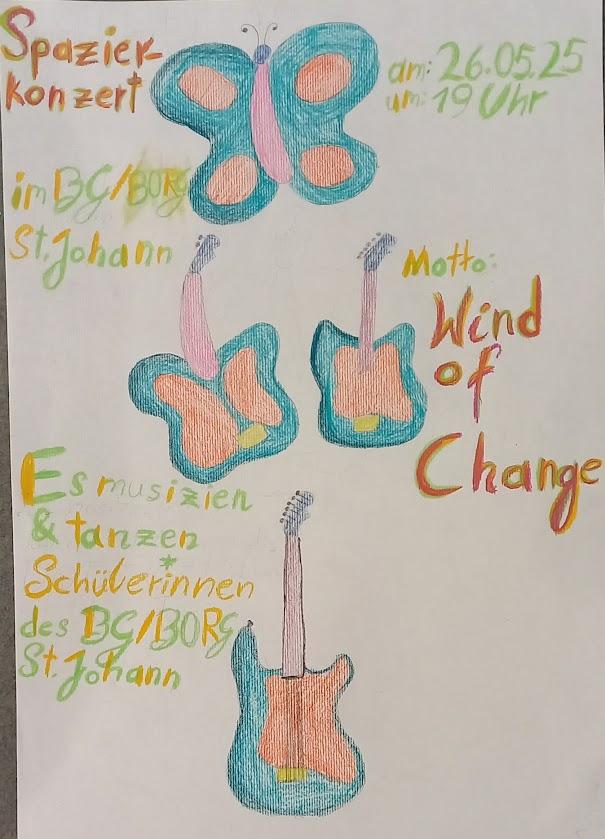 Spazier-
konzert
am: 26.05.25
um: 19 Uhr
im BG/BORG
St. Johann
Motto:
Wind
of
Change
Es musizien
& tanzen
Schüler*innen
des BG/BORG
St. Johann